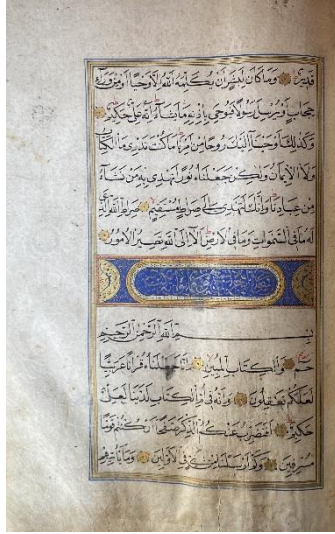 قدير وما كان لبشر أن يكلمه الله إلا وحيا أو من وراء
حجاب أو يرسل رسولا فيوحي بإذنه ما يشاء إنه علي حكيم
وكذلك أوحينا إليك روحا من أمرنا ما كنت تدري ما الكتاب
ولا الإيمان ولكن جعلناه نورا نهدي به من نشاء
من عبادنا وإنك لتهدي إلى صراط مستقيم صراط الله الذي
له ما في السموات وما في الأرض ألا إلى الله تصير الأمور
بسم الله الرحمن الرحيم
حم والكتاب المبين إنا جعلناه قرآنا عربيا
لعلكم تعقلون وإنه في أم الكتاب لدينا لعلي
حكيم أفنضرب عنكم الذكر صفحا أن كنتم قوما
مسرفين وكم أرسلنا من نبي في الأولين وما يأتيهم